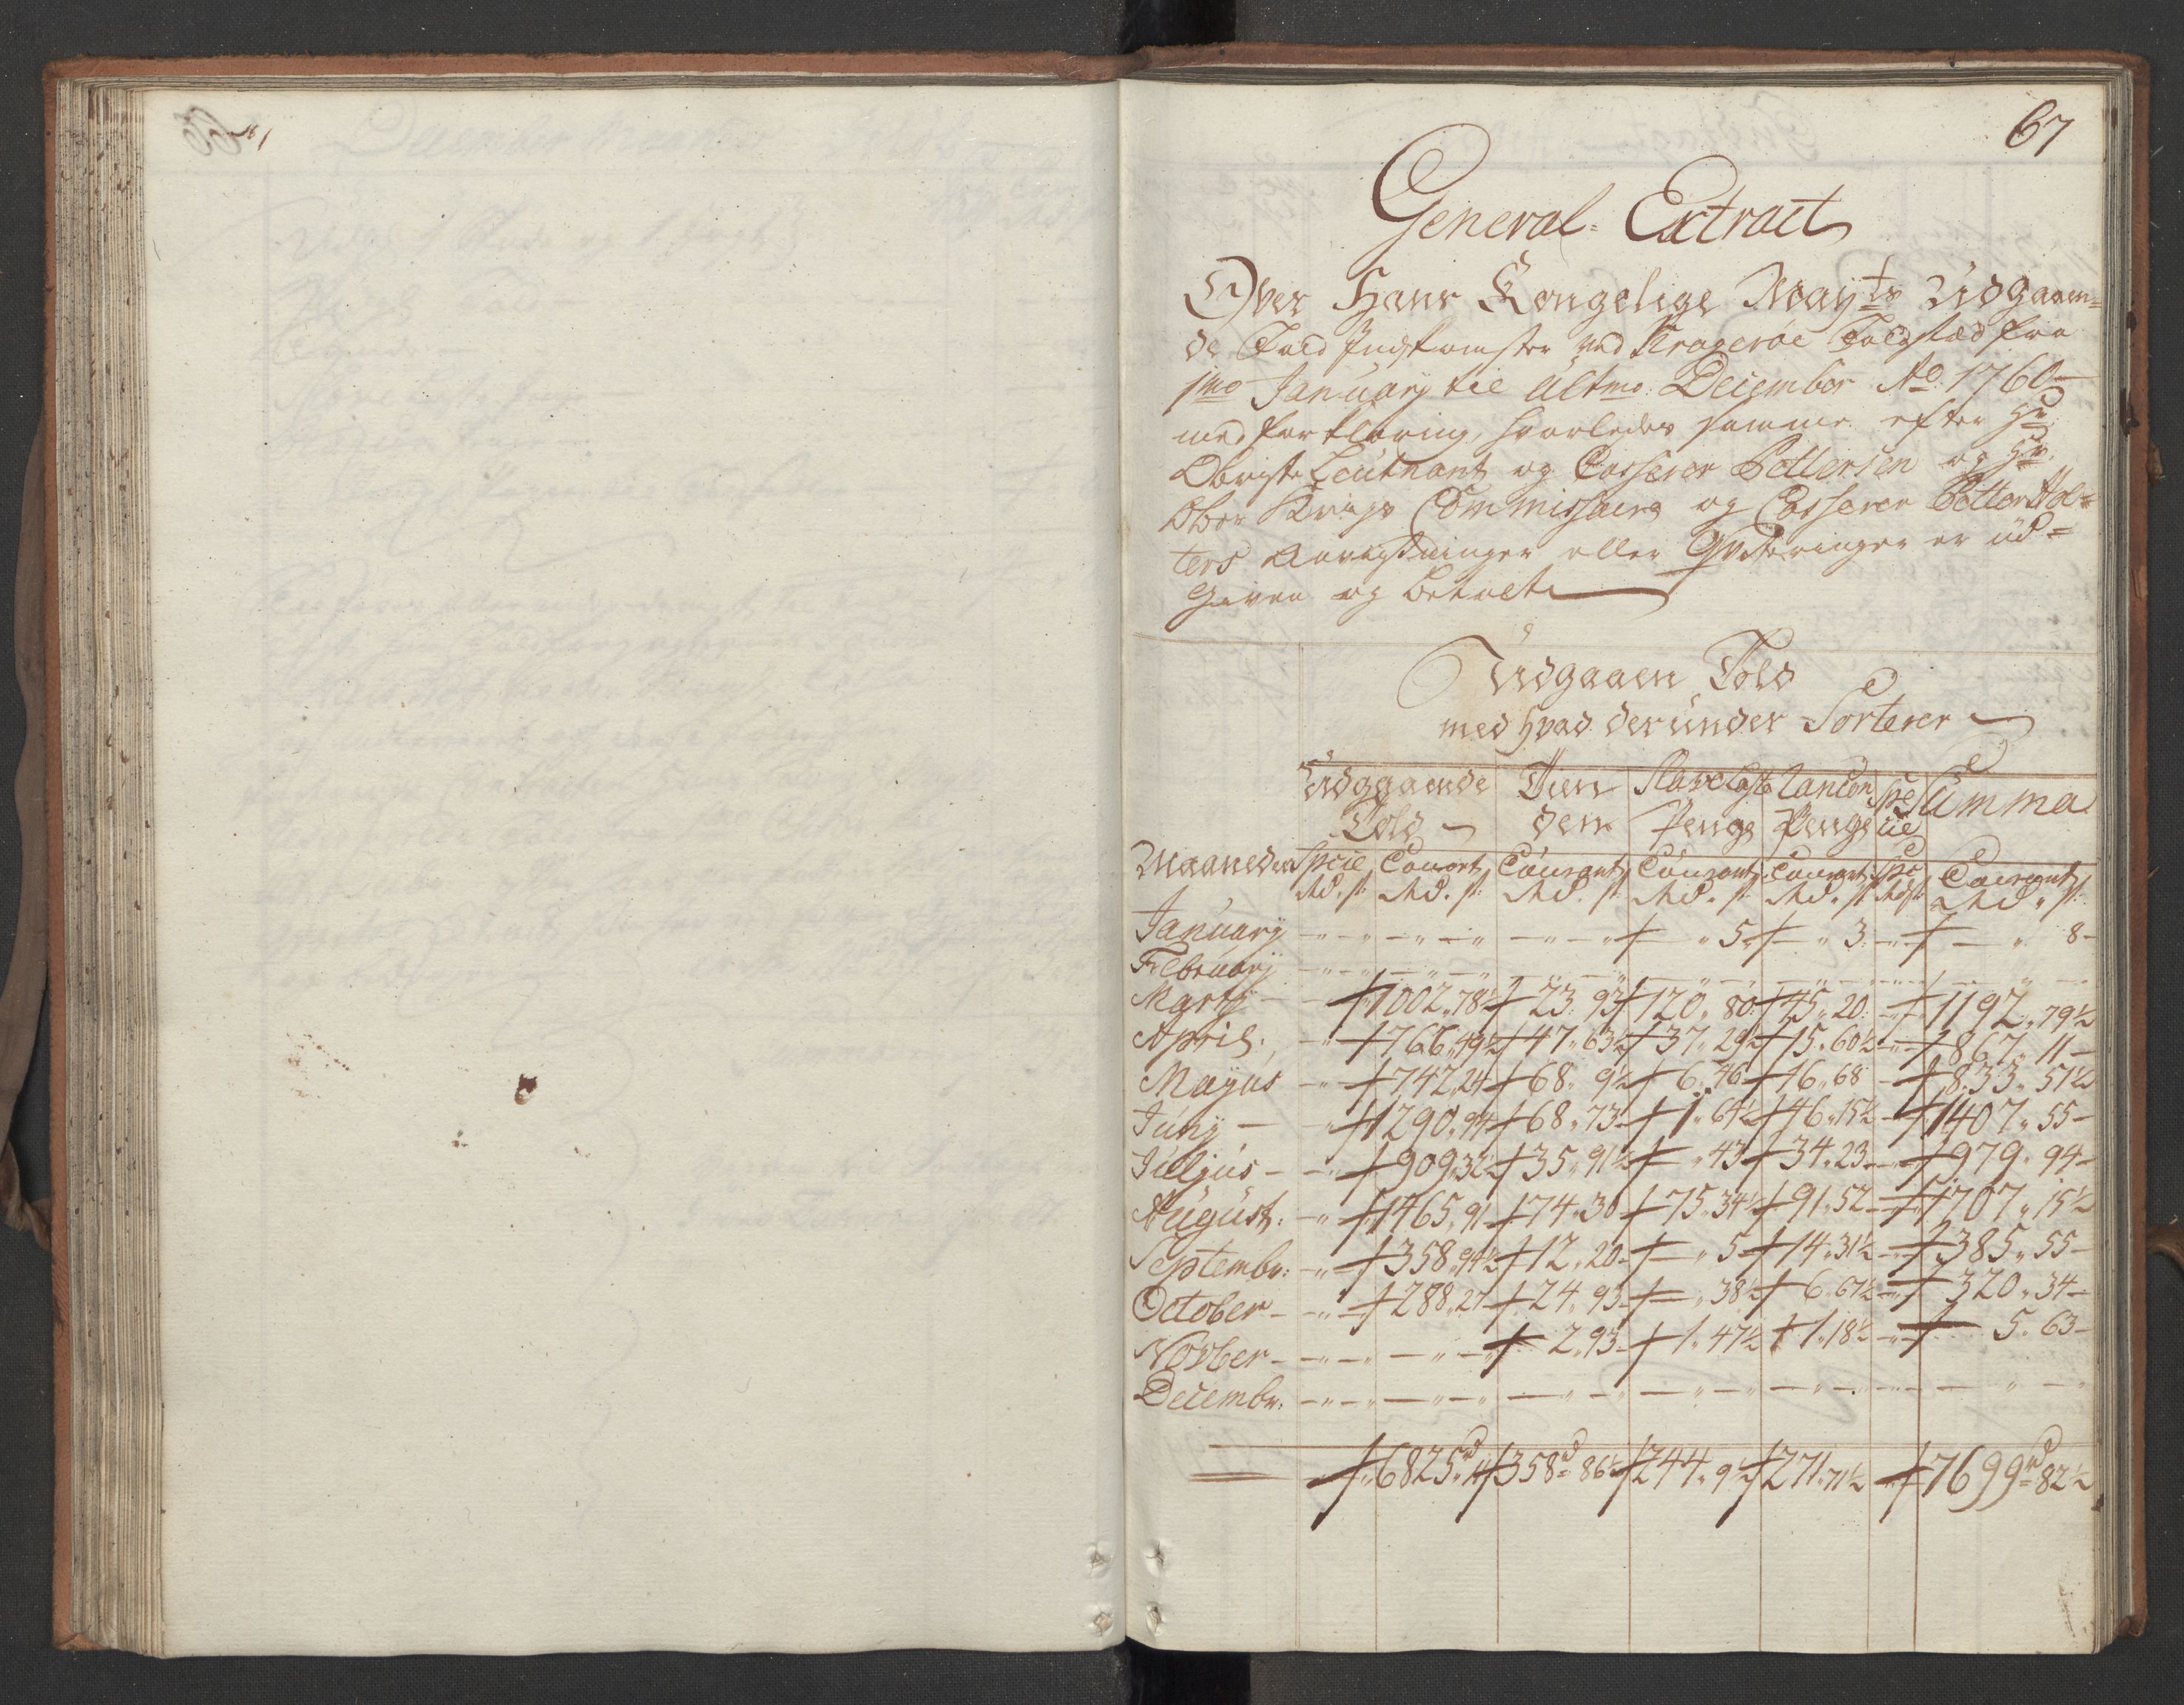 67
General Extract
Over Hans Kongelige Mayts Udgaaen-
de Told Indkomster ved Kragerøe Toldsted fra
1mo January til Ultmo December Ao 1760
med forklaring, hvorledes samme efter Hr
Obriste Leutnant og Casserer Pettersen og Hr
Ober Krigs Commissaire og Casserer Petter Hol-
ters Anviisninger eller Qviteringer er ud-
given og betalt
Udgaaen Told
med hvad derunder Sorterer
Udgaaende Tien Slave Casse Rancon Spe Summa
Told den Penge Penge cie
Maaneder Specie Courant Courant Courant Courant Spe Courant
Rd. s. Rd. s. Rd. s. Rd. s. Rd. s. Rd s Rd. s.
January - " - " - - " - " - - " - " + " 5 + " 3 - + - " 8 -
February - " - " -
Marty - + 1002 " 78½ + 23 " 93 + 120 " 80 + 45 " 20 + 1192 " 79½
April. - " + 766 " 49½ + 47 " 63½ + 37 " 29½ + 15 " 60½ + 867 " 11 -
Majus - " + 742 " 24 + 68 " 9½ + 6 " 46 + 16 " 68 + 833 " 51½
Juny - + 1290 " 94 + 68 " 73 + 1 " 64½ + 46 " 15½ + 1407 " 55 -
Julljus - - " + 909 " 32½ + 35 " 91½ + " 43 + 34 " 23 - + 979 " 94 -
August: - " + 1465 " 91 + 74 " 30 + 75 " 34½ + 91 " 52 - + 1707 " 15½
Septembr: - " + 358 " 94½ + 12 " 20 - + " 5 + 14 " 31½ + 385 " 55 -
October - - " + 288 " 27 + 24 " 93 - + " 38½ + 6 " 67½ + 320 " 34 -
Novber - - " - - " - + 2 " 93 - + 1 " 47½ + 1 " 18½ + 5 " 63 -
Decembr: - " - - " -
+ 6825rd " 11 + 358rd " 86½ + 244 " 9½ + 271 " 71½ + 7699rd " 82½